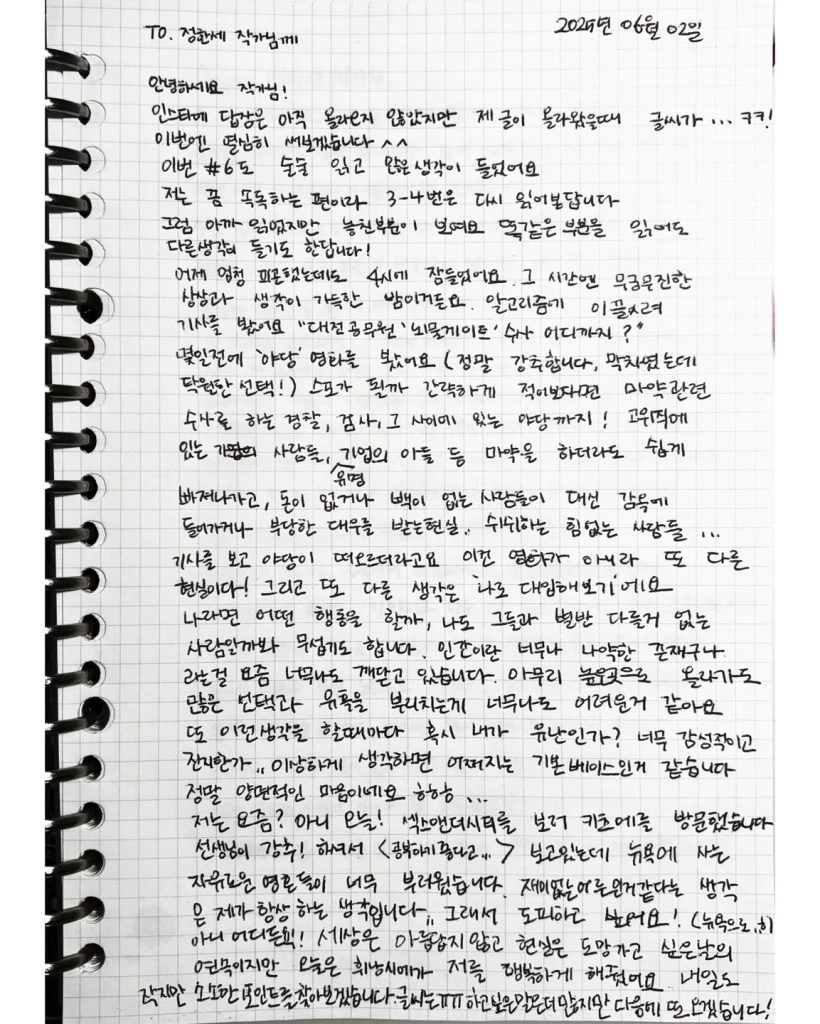 TO. 정한세 작가님께
2025년 06월 02일
안녕하세요 작가님!
인스타에 답장은 아직 올라오지 않았지만 제 글이 올라왔을때 글씨가 ... ㅋㅋ!
이번엔 열심히 써보겠습니다 ^^
이번 #6도 술술 읽고 많은 생각이 들었어요
저는 꼼 똑독하는 편이라 3-4번은 다시 읽어본답니다
그럼 아까 읽었지만 놓친부분이 보여요 똑같은 부분을 읽어도
다른생각이 들기도 한답니다!
어제 엄청 피곤했는데도 4시에 잠들었어요. 그 시간엔 무궁무진한
상상과 생각이 가득한 밤이거든요. 알고리즘에 이끌려
기사를 봤어요 "대전공무원 '뇌물게이트' 수사 어디까지?"
몇일전에 '야당' 영화를 봤어요 (정말 강추합니다, 막차였는데
탁월한 선택!) 스포가 될까 간략하게 적어보자면 마약관련
수사를 하는 경찰, 검사, 그 사이에 있는 야당까지! 고위직에
있는 사람들, 기업의 아들 등 마약을 하더라도 쉽게
유명
빠져나가고, 돈이 없거나 빽이 없는 사람들이 대신 감옥에
들어가거나 부당한 대우를 받는현실.. 쉬쉬하는 힘없는 사람들 ...
기사를 보고 야당이 떠오르더라고요 이건 영화가 아니라 또 다른
현실이다! 그리고 또 다른 생각은 '나로 대입해보기'에요
나라면 어떤 행동을 할까, 나도 그들과 별반 다를거 없는
사람일까봐 무섭기도 합니다. 인간이란 너무나 나약한 존재구나
라는걸 요즘 너무나도 깨닫고 있습니다. 아무리 높은곳으로 올라가도
많은 선택과 유혹을 뿌리치는게 너무나도 어려운거 같아요
또 이런생각을 할때마다 혹시 내가 유난인가? 너무 감성적이고
진지한가.. 이상하게 생각하면 어쩌지는 기본베이스인거 같습니다
정말 양면적인 마음이네요 하하 ...
저는 요즘? 아니 오늘! 섹스앤더시티를 보러 키츠에를 방문했습니다
선생님이 강추! 하셔서 <공부하기좋다고...> 보고있는데 뉴욕에 사는
자유로운 영혼들이 너무 부러웠습니다. 재미없는어른인거같다는 생각
은 제가 항상 하는 생각입니다.. 그래서 도피하고 싶어요! (뉴욕으로..히)
아니 어디든요! 세상은 아름답지 않고 현실은 도망가고 싶은날의
연속이지만 오늘은 저를 행복하게 해줬어요 내일도
작지만 소소한 포인트를 찾아보겠습니다. 글씨는 ㅠㅠ 하고싶은말은더많지만 다음에 또 오겠습니다!